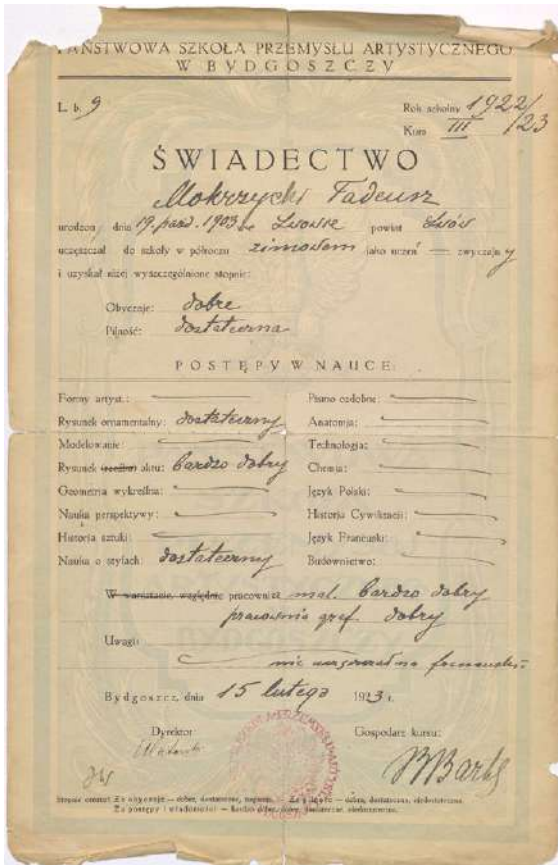 PAŃSTWOWA SZKOŁA PRZEMYSŁU ARTYSTYCZNEGO
W BYDGOSZCZY
L. b. 9
Rok szkolny 1922/23
Kurs III
ŚWIADECTWO
Mokrzycki Tadeusz
urodzony dnia 19. paźd. 1903 we Lwowie powiat Lwów
uczęszczał do szkoły w półroczu zimowem jako uczeń — zwyczajny
i uzyskał niżej wyszczególnione stopnie:
Obyczaje: dobre
Pilność: dostateczna
POSTĘPY W NAUCE:
Formy artyst.:
Rysunek ornamentalny: dostateczny
Modelowanie:
Rysunek aktu: bardzo dobry
Geometria wykreślna:
Nauka perspektywy:
Historja sztuki:
Nauka o stylach: dostateczny
Pismo ozdobne:
Anatomja:
Technologja:
Chemja:
Język Polski:
Historja Cywilizacji:
Język Francuski:
Budownictwo:
W warsztacie, względnie pracownice mal. bardzo dobry
pracownia graf. dobry
Uwagi:
nie
Bydgoszcz, dnia 15 lutego 1923 r.
Dyrektor:
Gospodarz kursu:
Stopnie ocenne: Za obyczaje — dobre, dostateczne, naganne. — Za pilność — dobra, dostateczna, niedostateczna.
Za postępy i wiadomości — bardzo dobry, dobry, dostateczne, niedostateczne.